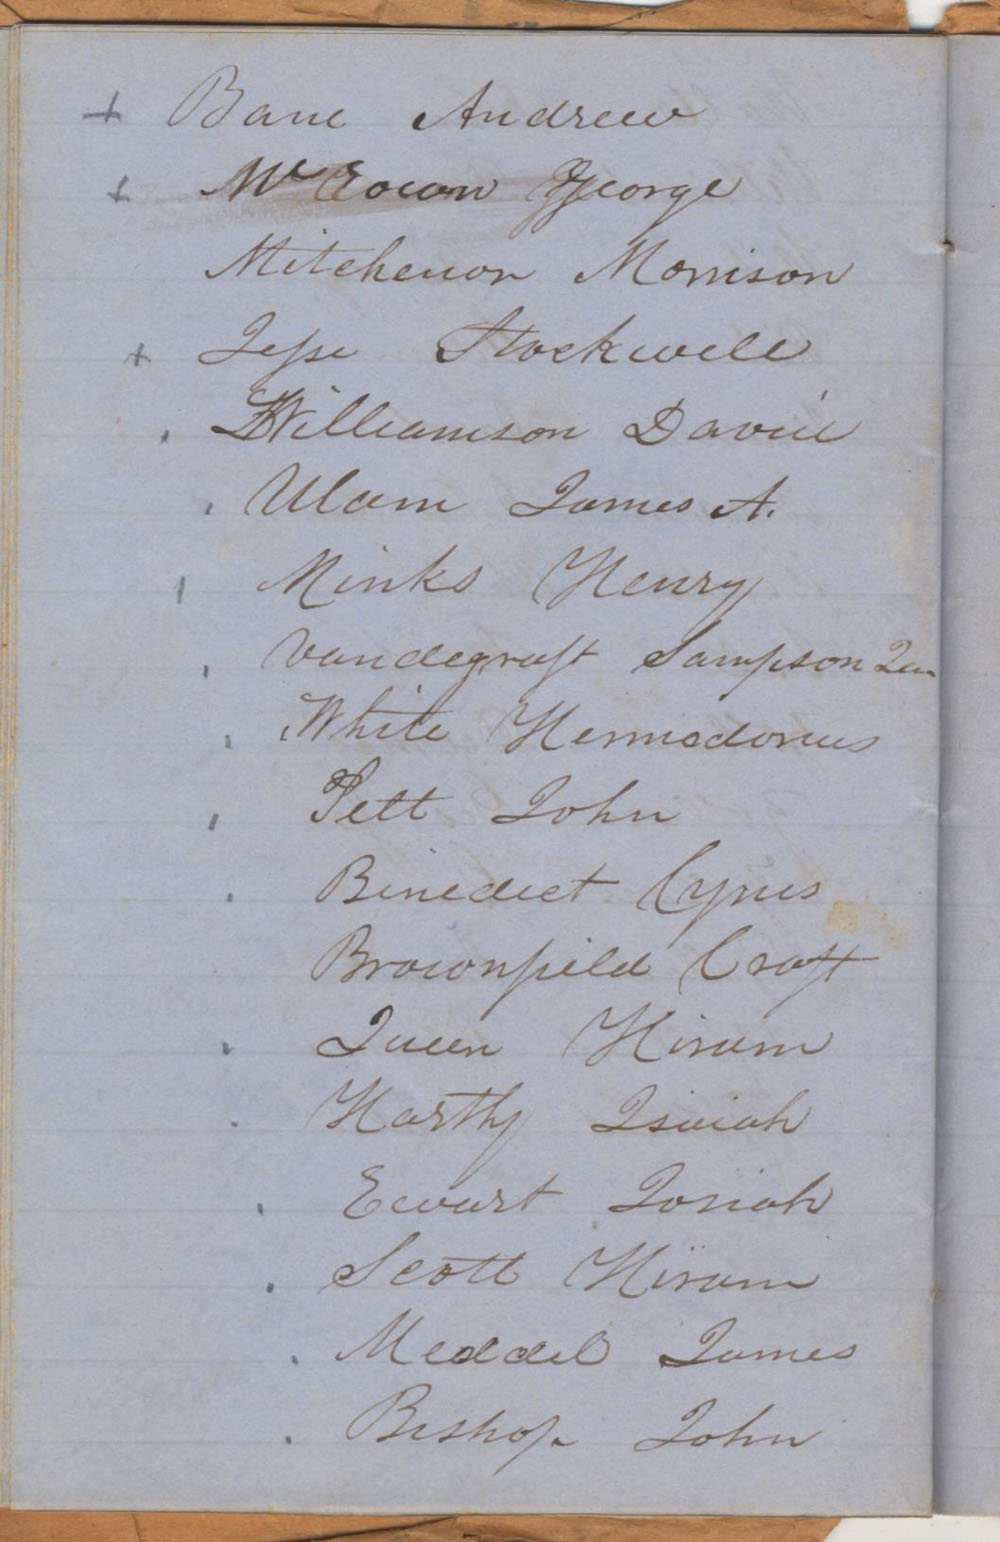 + Bane Andrew
+ Mc Eowan George
Mitchenor Morrison
+ Jesse Stockwell
Williamson David
Ulam James A.
Minks Henry
Vandegraft Sampson Jun
White Hermodorus
Pett John
Benedict Cyrus
Brownfield Craft
Queen Hiram
Harthy Isaiah
Ewart Josiah
Scott Hiram
Meddel James
Bishop John